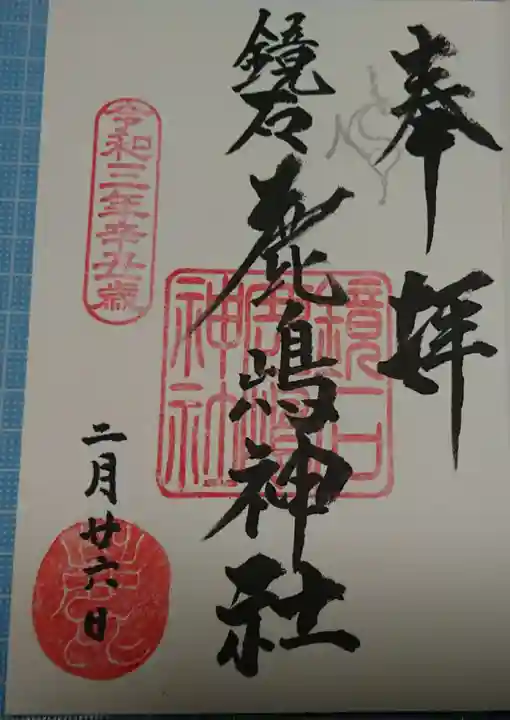 奉拝
鏡石
鹿嶋神社
鏡石
鹿嶋
神社
令和三年辛丑歳
二月廿六日